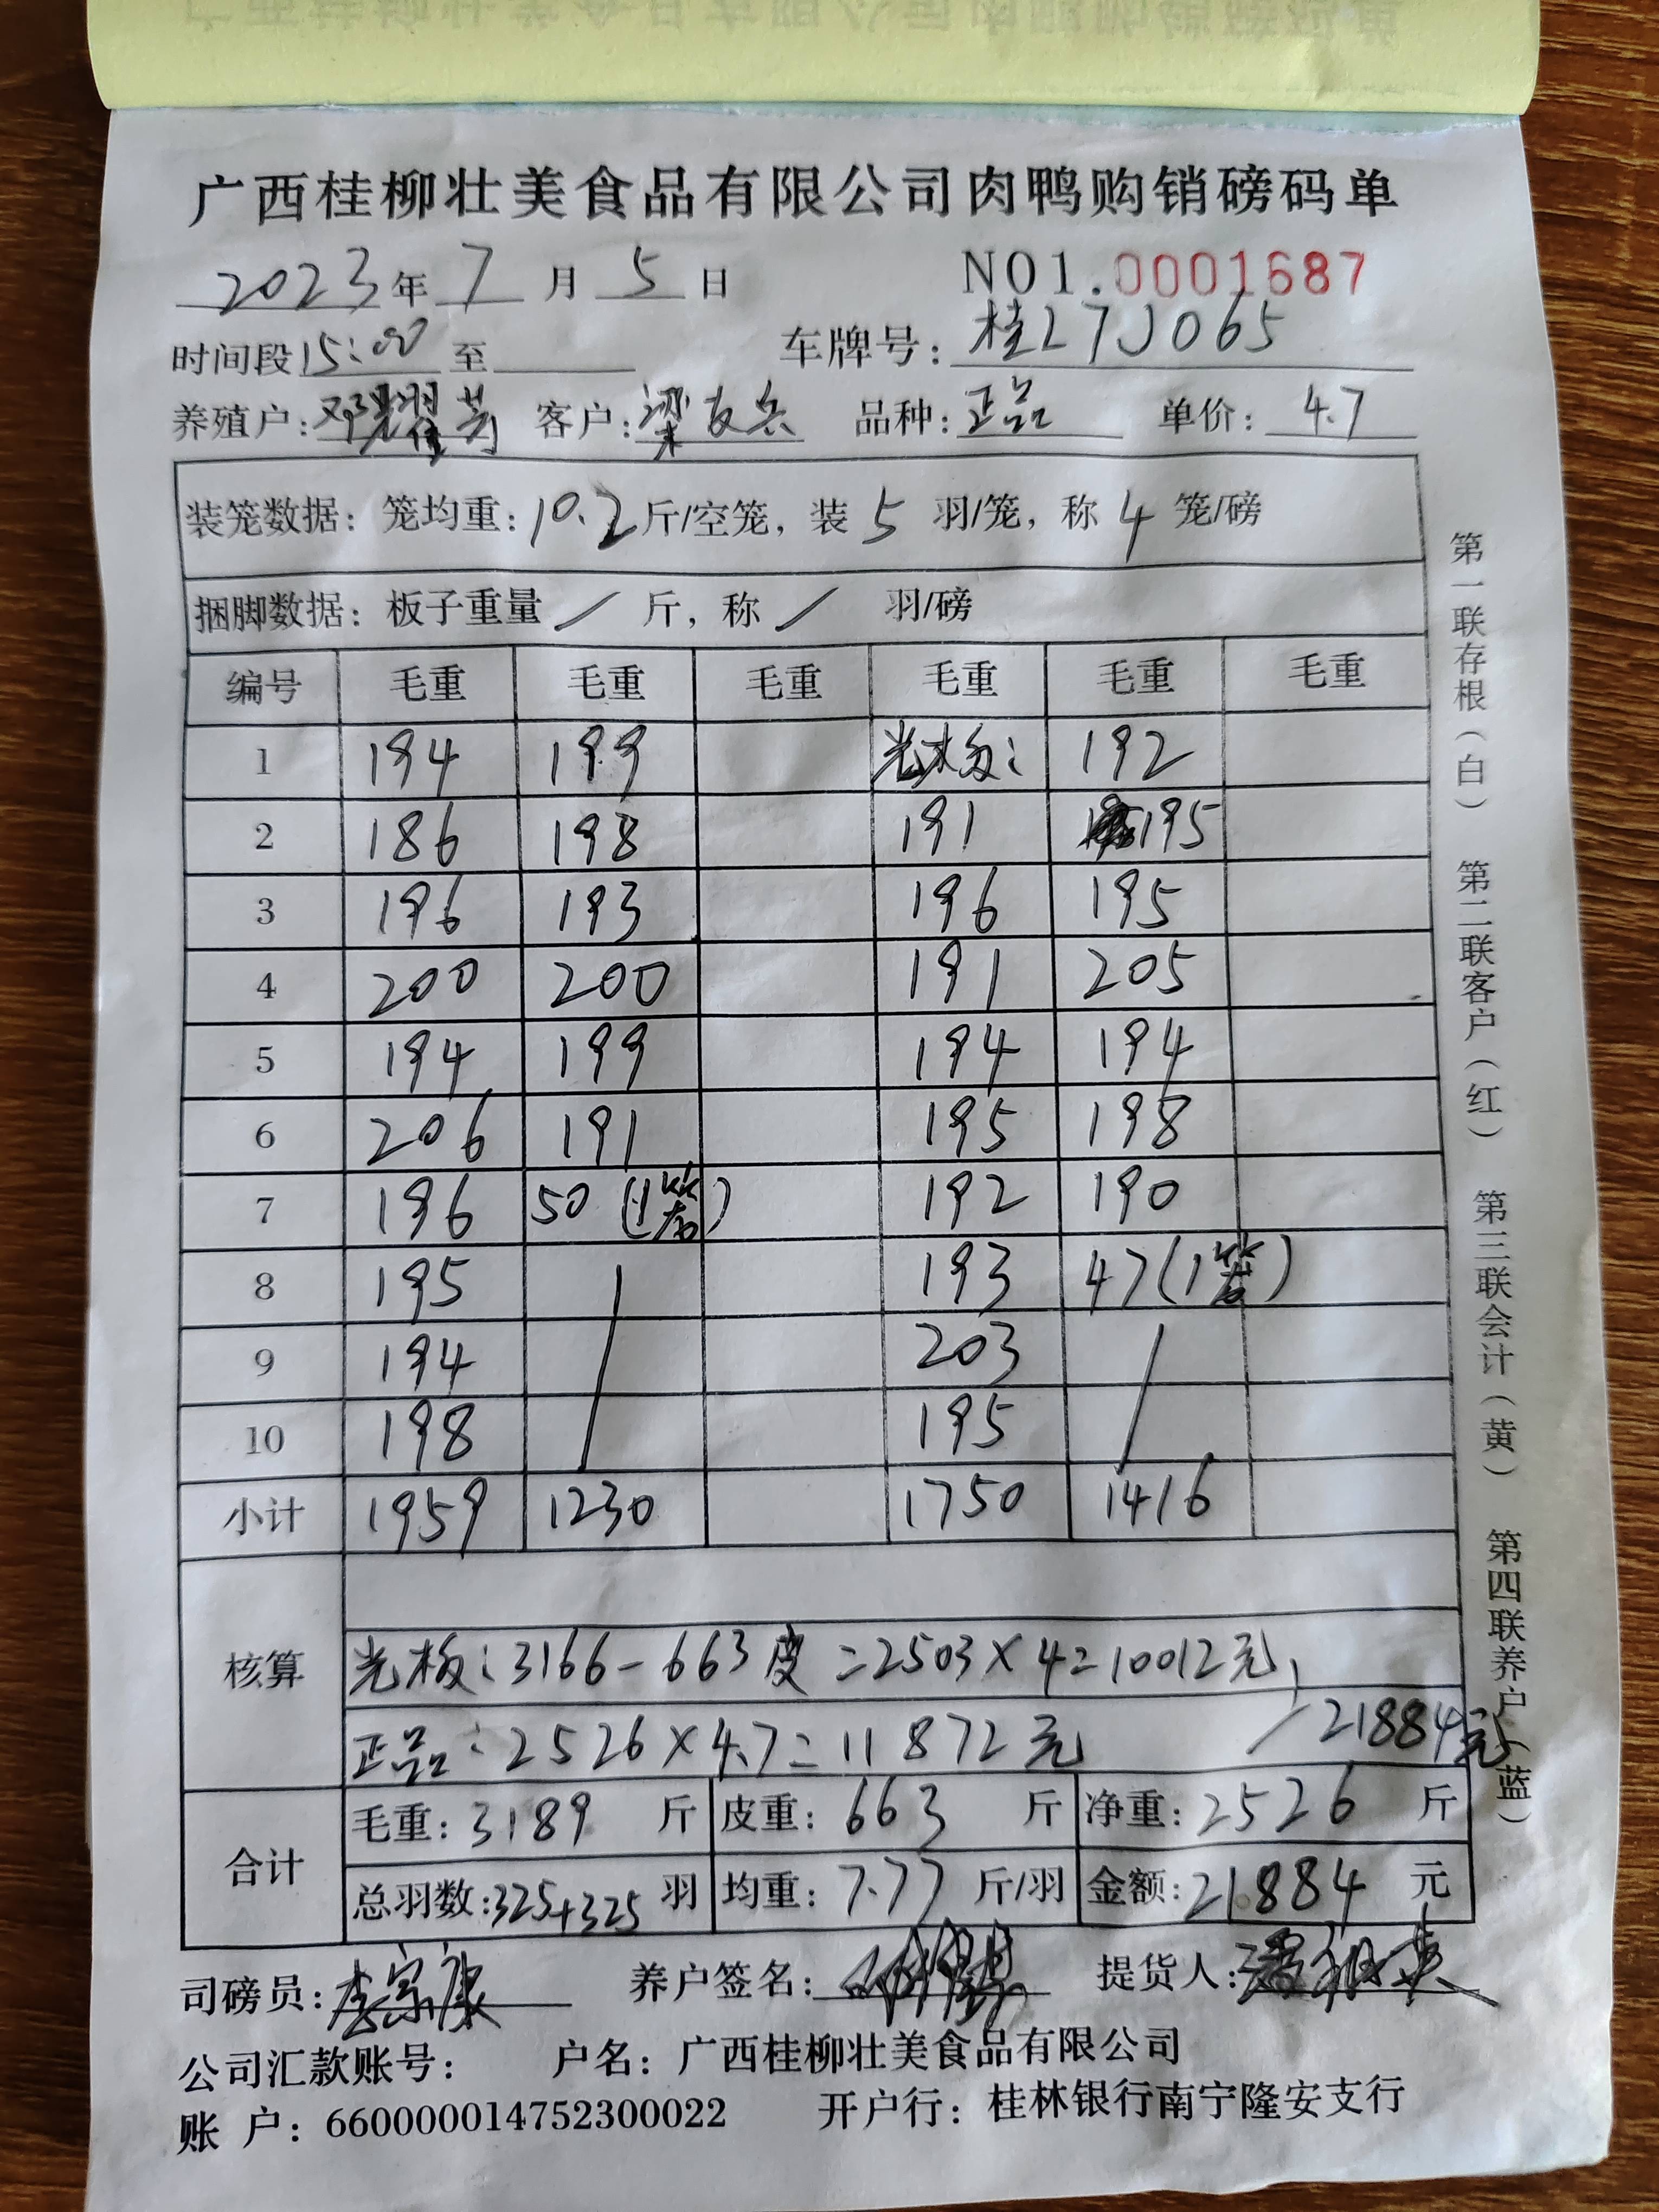 广西桂柳壮美食品有限公司肉鸭购销磅码单
2023年 7 月 5 日 NO1.0001687
时间段15:00 至 车牌号: 桂L7J065
养殖户:邓耀芳 客户:梁友兵 品种:正品 单价: 4.7
装笼数据: 笼均重:10.2斤/空笼, 装 5 羽/笼, 称 4 笼/磅
捆脚数据: 板子重量 / 斤, 称 / 羽/磅
编号 毛重 毛重 毛重 毛重 毛重 毛重
1 194 199 光板: 192
2 186 198 191 195
3 196 193 196 195
4 200 200 191 205
5 194 199 194 194
6 206 191 195 198
7 196 50 (1笼) 192 190
8 195 193 47(1笼)
9 194 203
10 198 195
小计 1959 1230 1750 1416
核算
光板:3166-663皮=2503×4=10012元
正品:2526×4.7=11872元 21884元
合计
毛重: 3189 斤 皮重: 663 斤 净重: 2526 斤
总羽数:325+325 羽 均重: 7.77 斤/羽 金额:21884 元
司磅员:李宗康 养户签名: 提货人:
公司汇款账号: 户名: 广西桂柳壮美食品有限公司
账 户: 660000014752300022 开户行: 桂林银行南宁隆安支行
第一联存根(白) 第二联客户(红) 第三联会计(黄) 第四联养户(蓝)